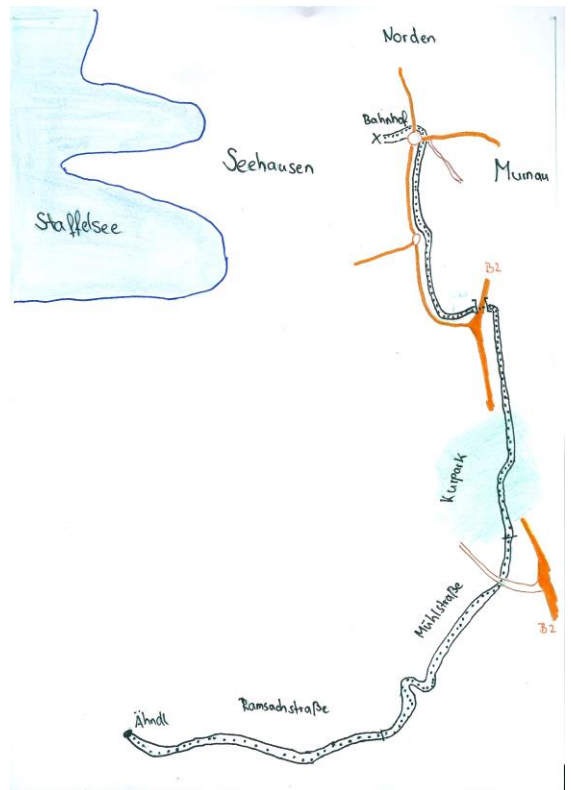 Norden
Bahnhof
X
Seehausen
Murnau
Staffelsee
B2
Kurpark
Mühlstraße
B2
Ramsachstraße
Ähndl